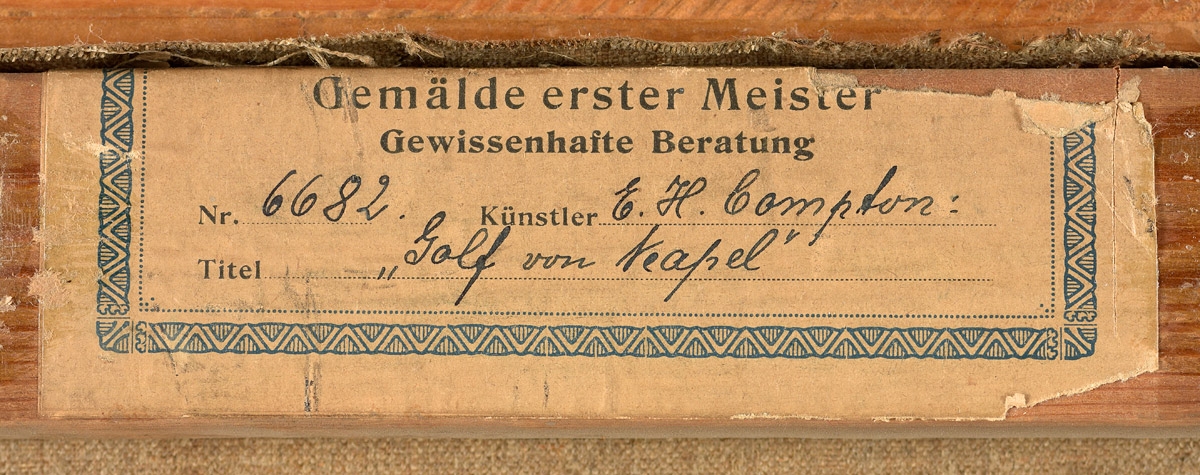 Gemälde erster Meister
Gewissenhafte Beratung
Nr. 6682. Künstler E. H. Compton:
Titel „Golf von Neapel"